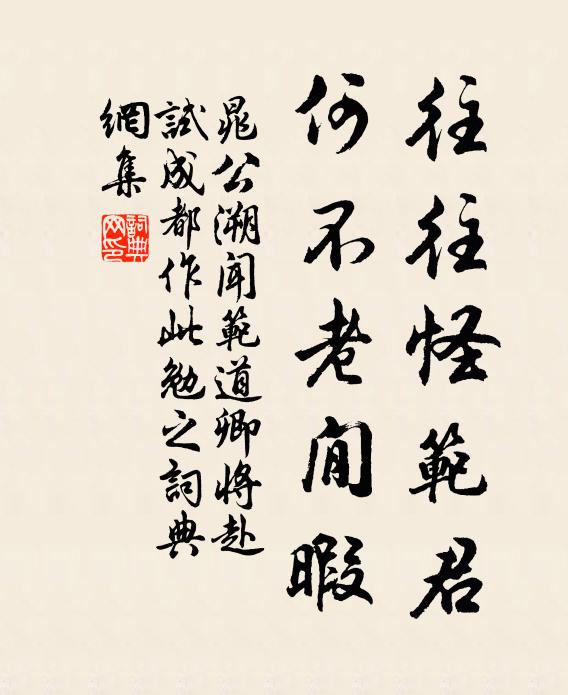 往往怪範君
何不老閒暇
晁公溯聞範道卿將赴
試成都作此勉之詞典
網集
詞典
网印